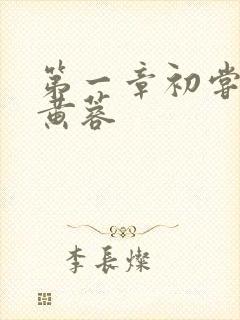 第一章初尝
黄蓉
李长灿